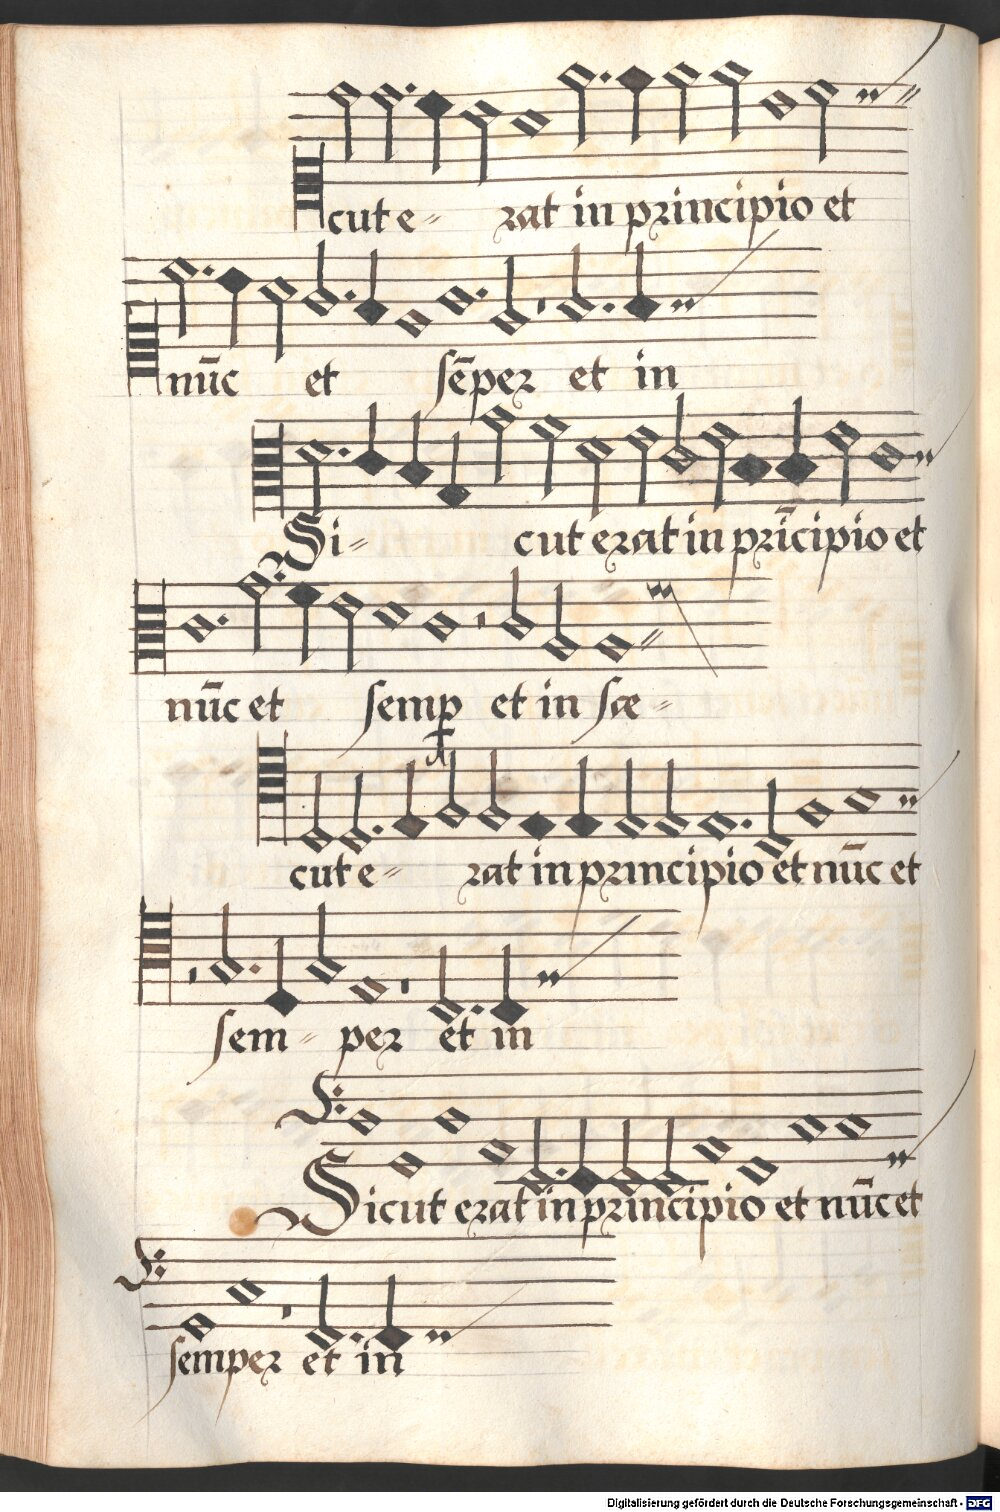 cut e= rat in principio et
nūc et sēper et in
Si= cut erat in prīcipio et
nūc et semp et in sæ=
cut e= rat in principio et nūc et
sem= per et in
Sicut erat in principio et nūc et
semper et in
Digitalisierung gefördert durch die Deutsche Forschungsgemeinschaft - DFG